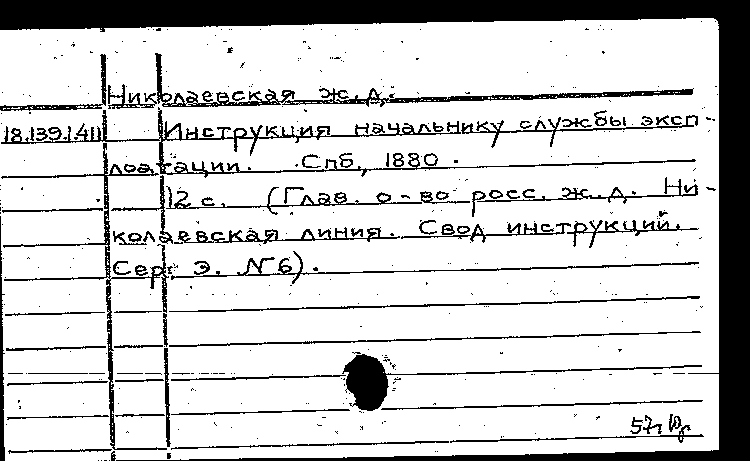 Николаевская ж.д.
18.139.1411 Инструкция начальнику службы эксп-
лоатации. Спб., 1880.
12 с. (Глав. о-во росс. ж.д. Ни-
колаевская линия. Свод инструкций.
Сер. Э. № 6).